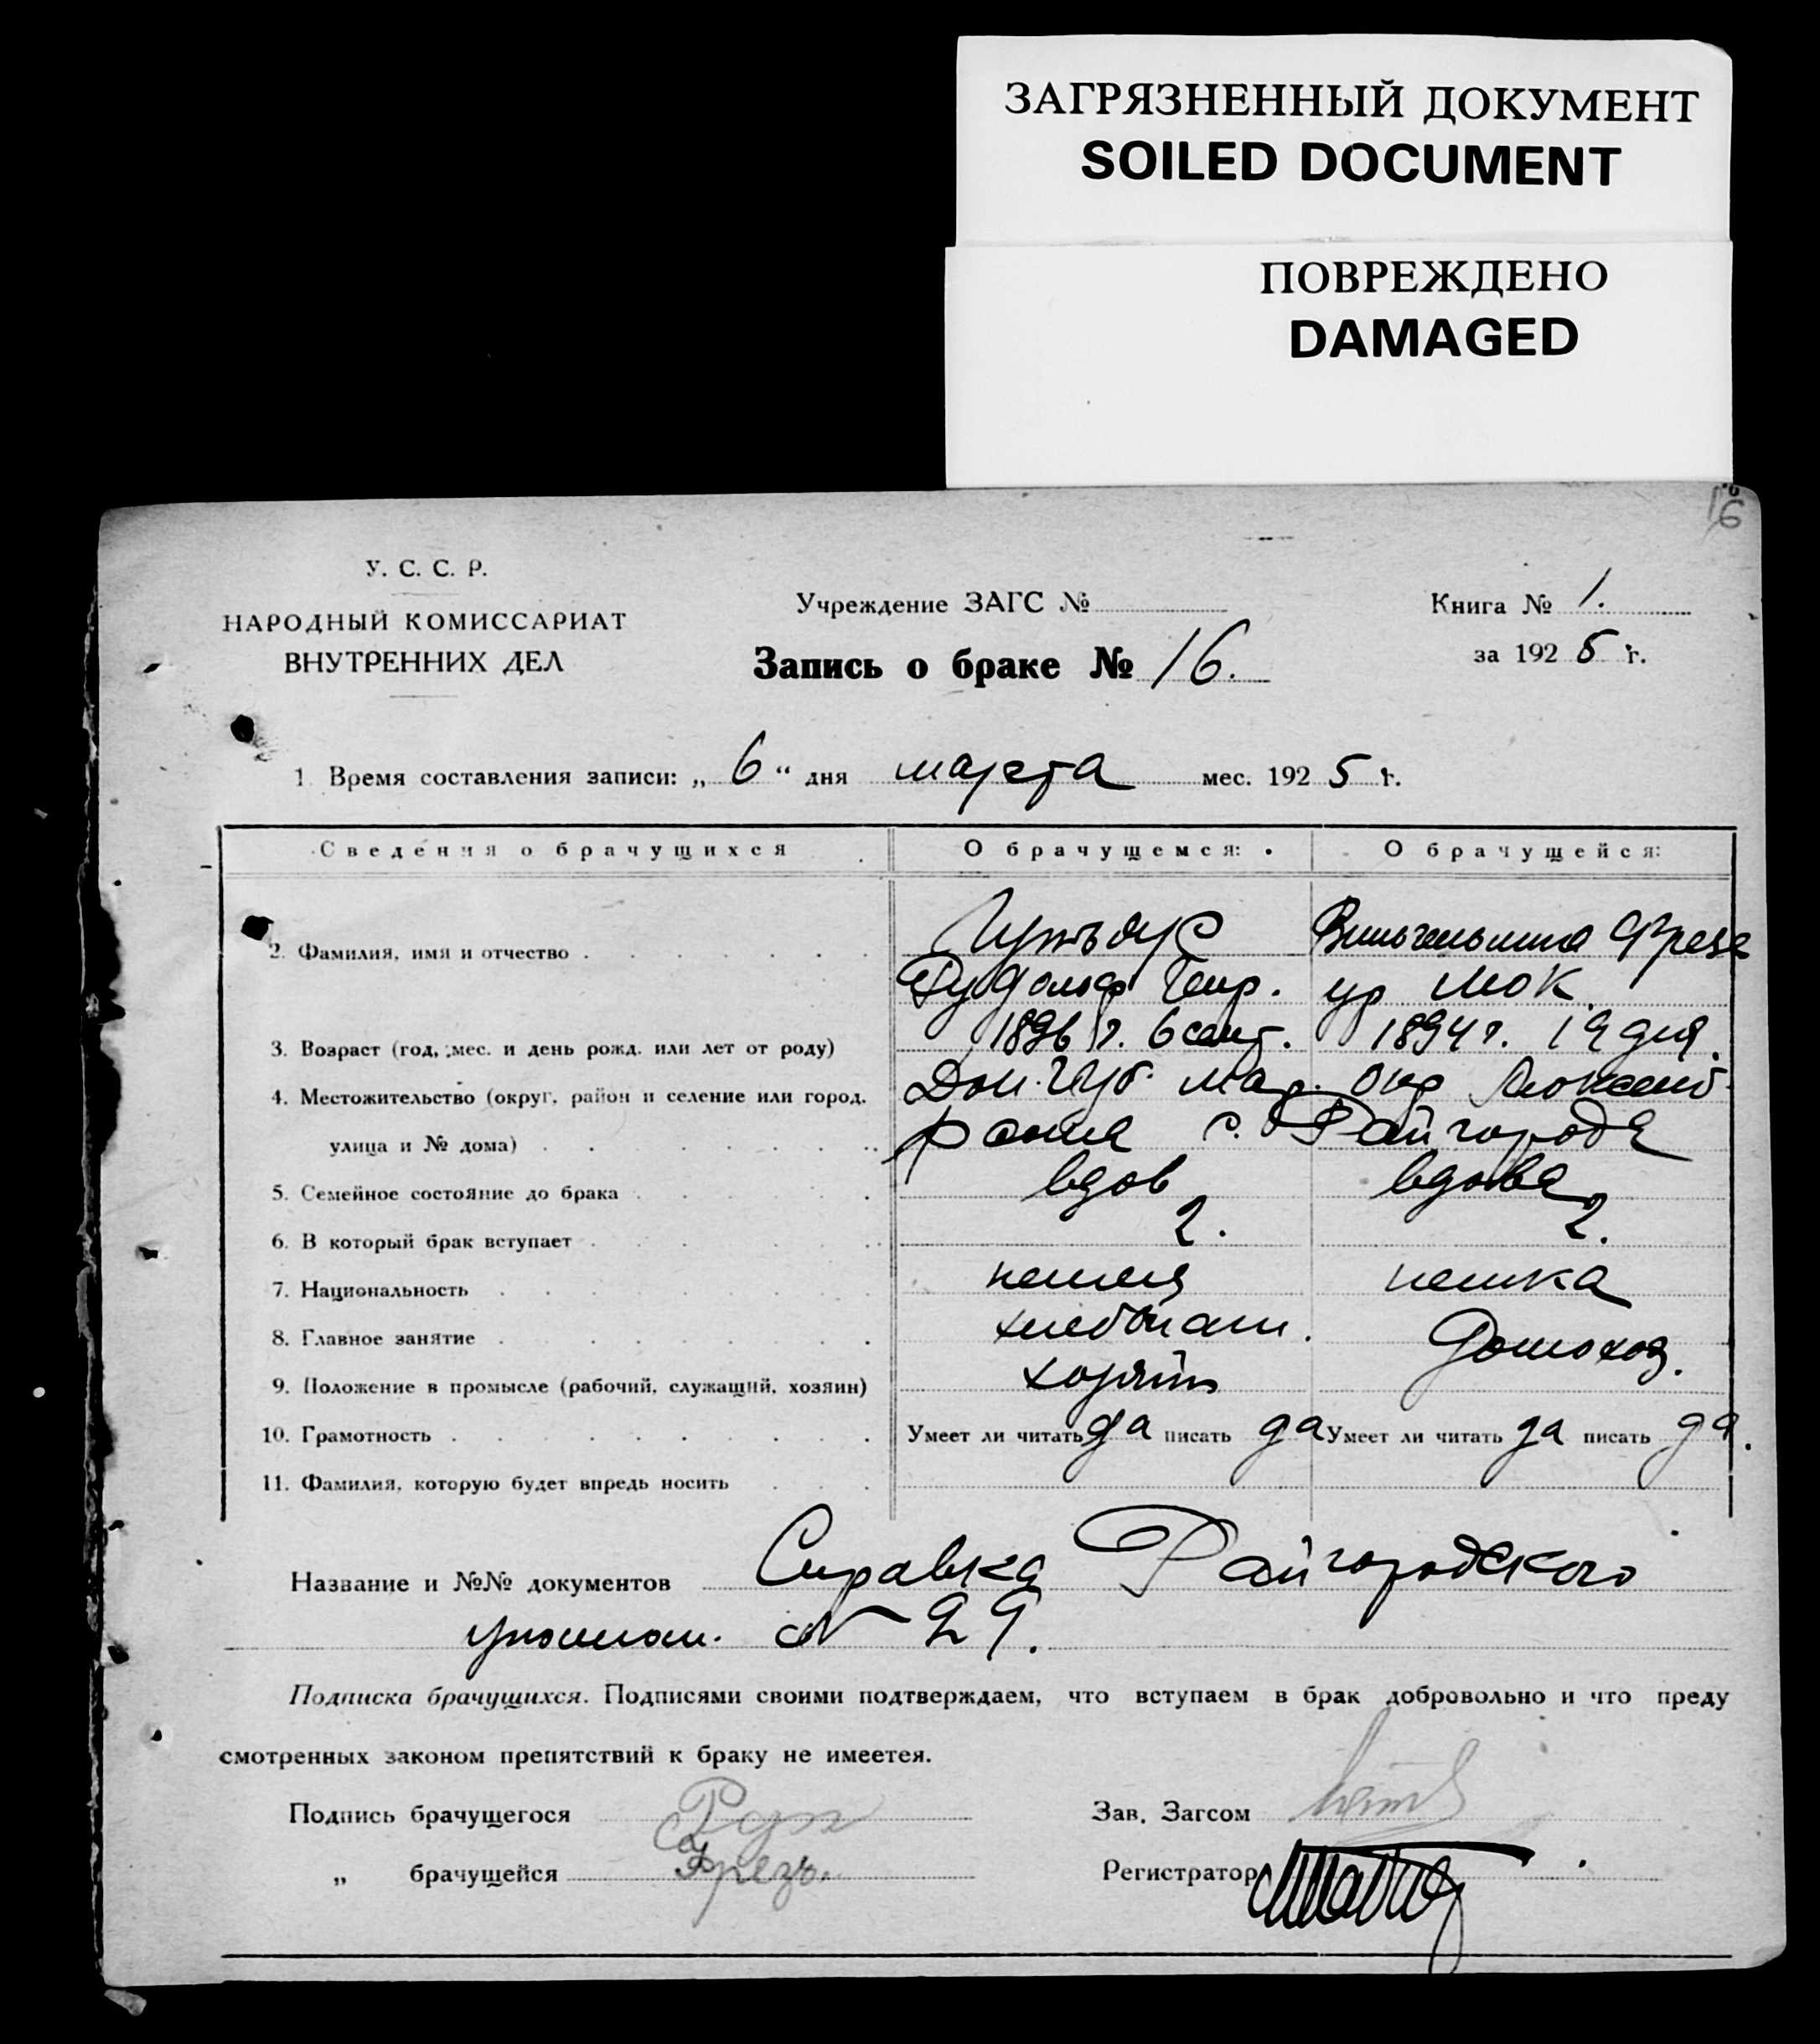 ЗАГРЯЗНЕННЫЙ ДОКУМЕНТ
SOILED DOCUMENT
ПОВРЕЖДЕНО
DAMAGED
16
У. С. С. Р.
НАРОДНЫЙ КОМИССАРИАТ
ВНУТРЕННИХ ДЕЛ
Учреждение ЗАГС №
Запись о браке № 16.
Книга № 1.
за 1925 г.
1. Время составления записи: „ 6 “ дня марта мес. 1925 г.
Сведения о брачущихся О брачущемся: О брачущейся:
2. Фамилия, имя и отчество Вильгельмина Фрезе
Рудольф Генр. ур Мок.
3. Возраст (год, мес. и день рожд. или лет от роду) 1896 г. 6 сент. 1894 г. 19 дня.
4. Местожительство (округ, район и селение или город, Дон. Губ. Мар. Окр Люксемб.
улица и № дома) района с. Райгорода
5. Семейное состояние до брака вдов вдова
6. В который брак вступает 2. 2.
7. Национальность немец немка
8. Главное занятие хлебопаш. Домохоз.
9. Положение в промысле (рабочий, служащий, хозяин) хозяин
10. Грамотность Умеет ли читать да писать да Умеет ли читать да писать да.
11. Фамилия, которую будет впредь носить
Название и №№ документов Справка Райгородского
уполном. № 29.
Подписка брачущихся. Подписями своими подтверждаем, что вступаем в брак добровольно и что преду
смотренных законом препятствий к браку не имеетея.
Подпись брачущегося
Зав. Загсом
„ брачущейся Фрезе.
Регистратор